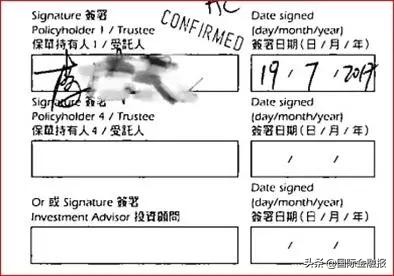 HC
CONFIRMED
Signature 簽署
Policyholder 1 / Trustee
保單持有人 1 / 受託人
Date signed
(day/month/year)
簽署日期(日 / 月 / 年)
19 / 7 / 2017
Signature 簽署
Policyholder 4 / Trustee
保單持有人 4 / 受託人
Date signed
(day/month/year)
簽署日期(日 / 月 / 年)
/ /
Or 或 Signature 簽署
Investment Advisor 投資顧問
Date signed
(day/month/year)
簽署日期(日 / 月 / 年)
/ /
头条 @国际金融报